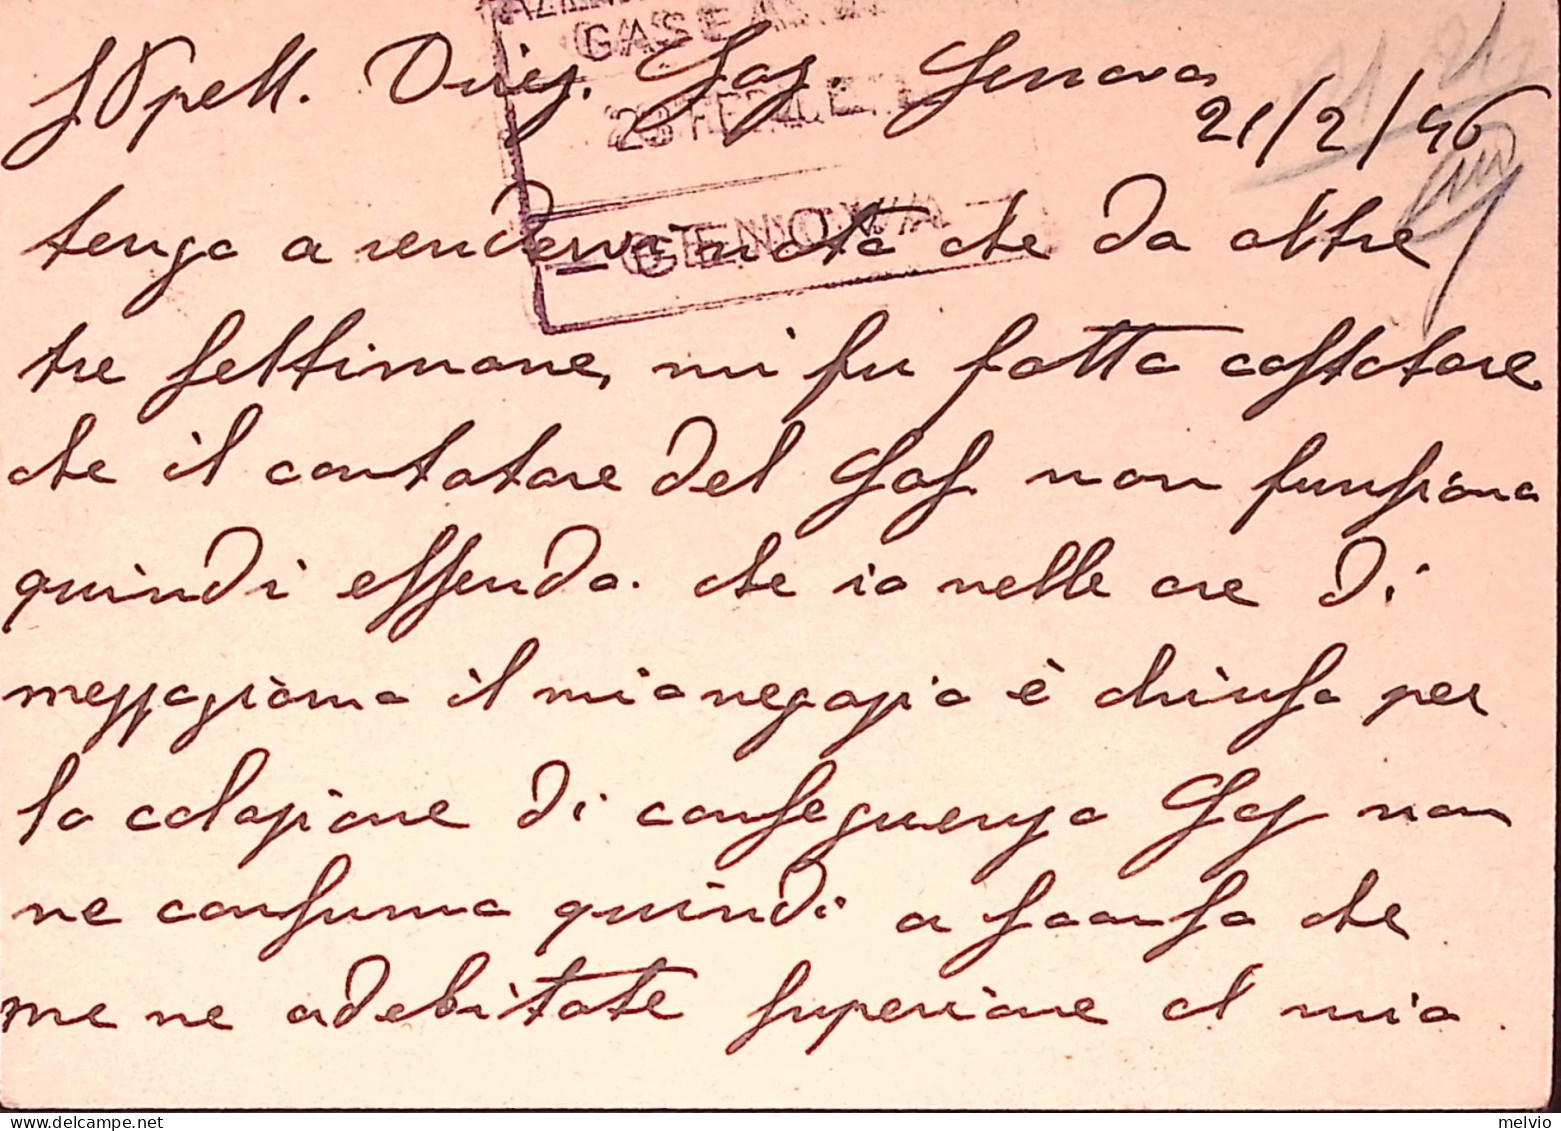 Spell. Dirig. Gas. Genova
21/2/46
tengo a rendervi noto che da oltre
tre settimane, mi fu fatto costatare
che il contatore del Gas non funsiona
quindi essendo che io nelle ore di
mezzagiorno il mio negozio è chiuso per
la colazione di conseguenza Gas non
ne consuma quindi a scanso che
me ne adebitate superiore al mio
GAS E
GENOVA
melvio